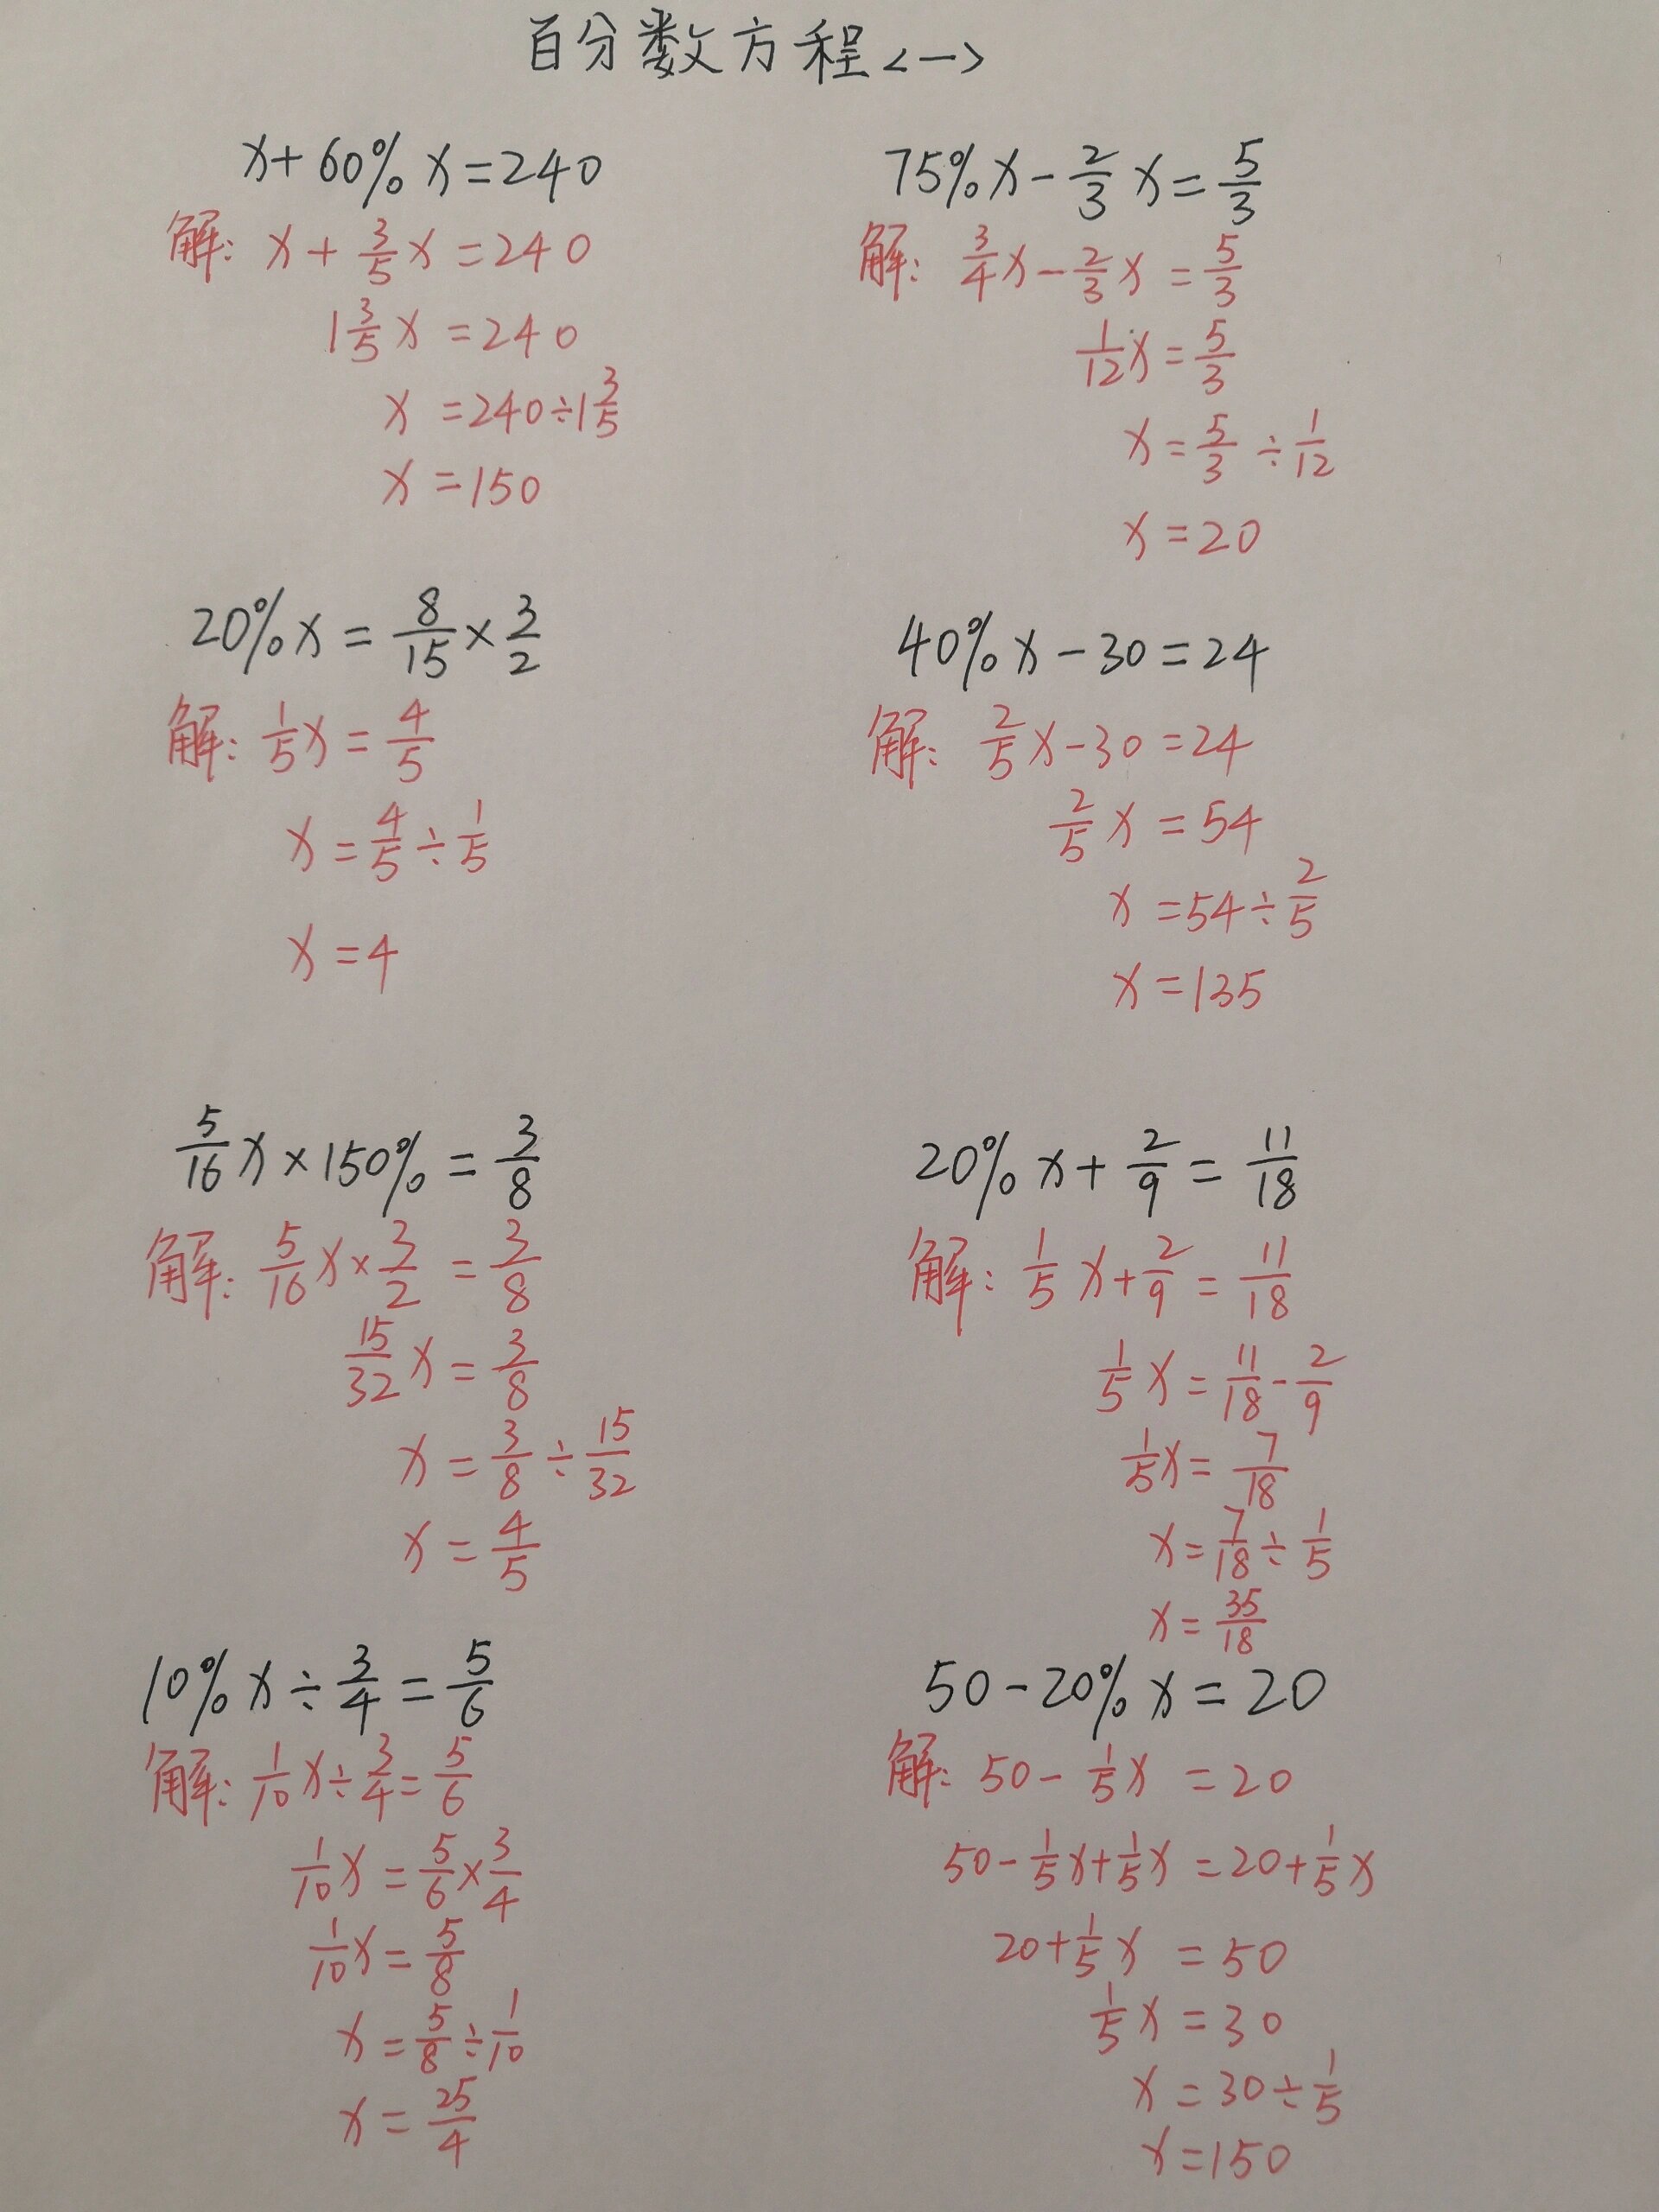 百分数方程<一>
x+60%x=240
解: x+3/5x=240
1 3/5x=240
x=240÷1 3/5
x=150
75%x-2/3x=5/3
解: 3/4x-2/3x=5/3
1/12x=5/3
x=5/3÷1/12
x=20
20%x=8/15×3/2
解: 1/5x=4/5
x=4/5÷1/5
x=4
40%x-30=24
解: 2/5x-30=24
2/5x=54
x=54÷2/5
x=135
5/16x×150%=3/8
解: 5/16x×3/2=3/8
15/32x=3/8
x=3/8÷15/32
x=4/5
20%x+2/9=11/18
解: 1/5x+2/9=11/18
1/5x=11/18-2/9
1/5x=7/18
x=7/18÷1/5
x=35/18
10%x÷3/4=5/6
解: 1/10x÷3/4=5/6
1/10x=5/6×3/4
1/10x=5/8
x=5/8÷1/10
x=25/4
50-20%x=20
解: 50-1/5x=20
50-1/5x+1/5x=20+1/5x
20+1/5x=50
1/5x=30
x=30÷1/5
x=150